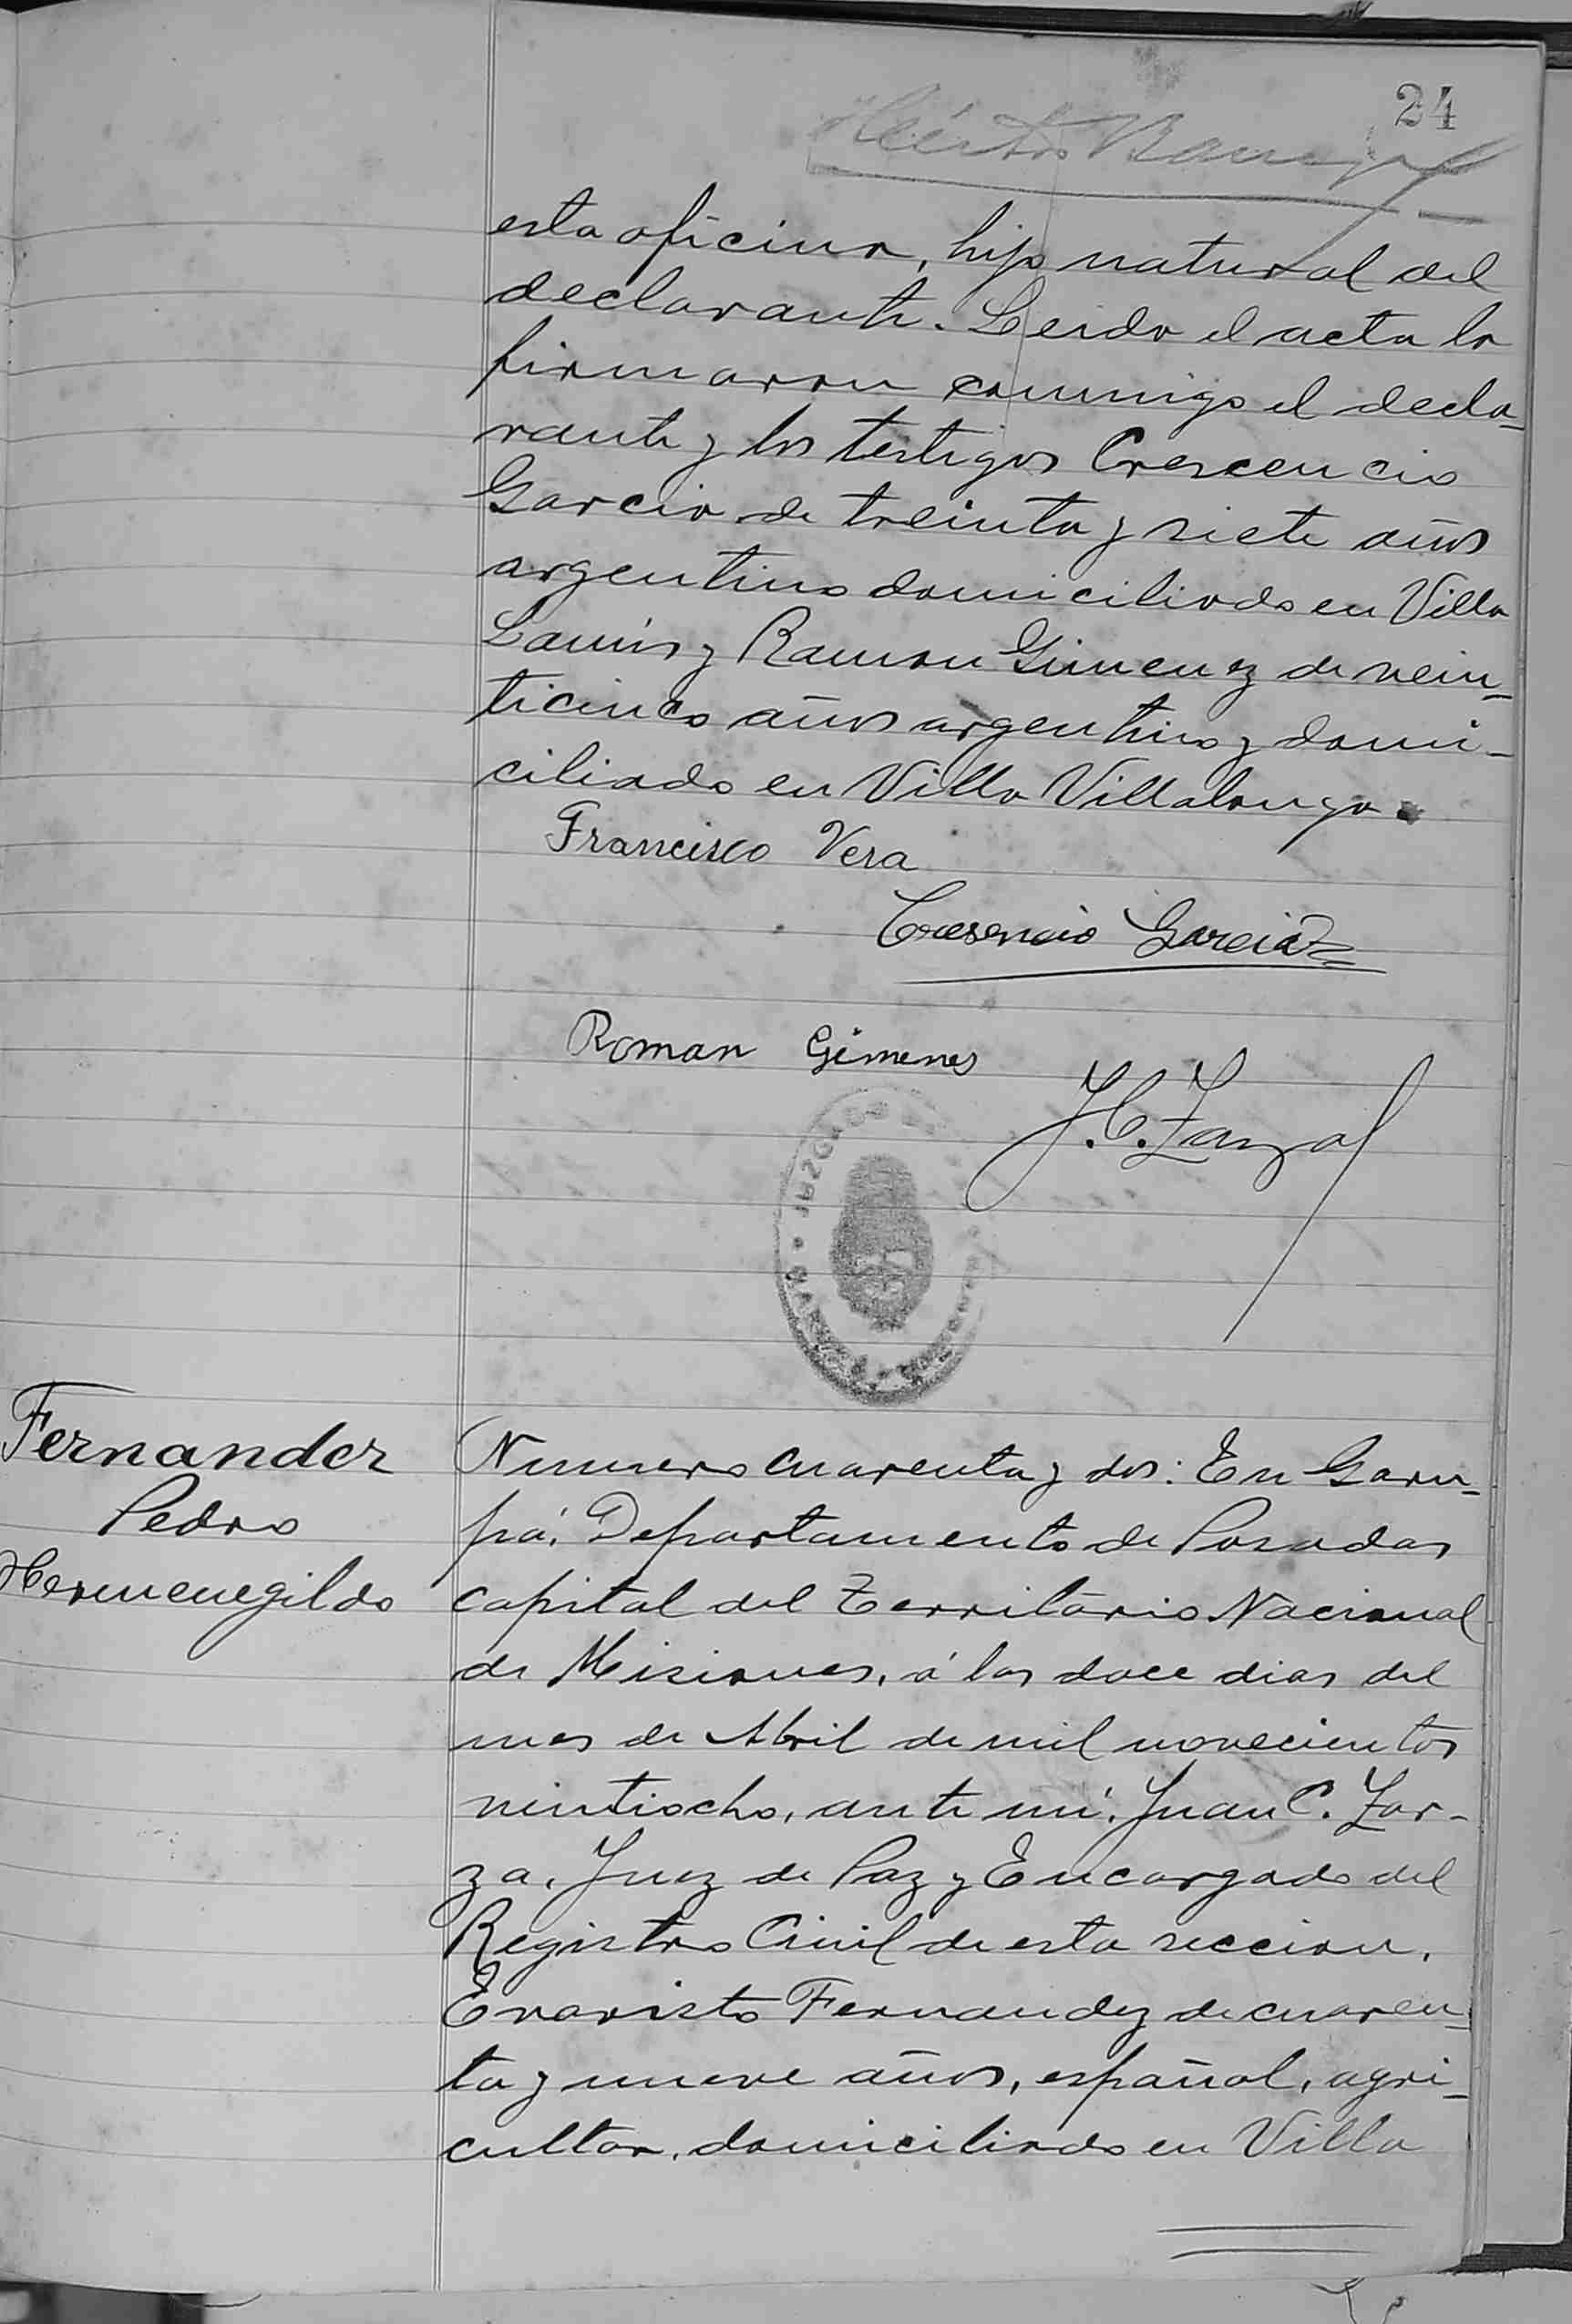 24
esta oficina, hijo natural del
declarante. Leida el acta la
firmaron conmigo el decla-
rante y los testigos Crescencio
Garcia de treinta y siete años
argentino domiciliado en Villa
Lanús y Ramon Gimenez de vein-
ticinco años argentino y domi-
ciliado en Villa Villalonga.
Francisco Vera
Cresencio Garcia
Roman Gimenes
J. C. Zarza
JUZGADO DE
Fernandez
Pedro
Hermenegildo
Numero cuarenta y dos: En Garu-
pá, Departamento de Posadas
capital del Territorio Nacional
de Misiones, á los doce dias del
mes de Abril de mil novecientos
veintiocho, ante mí, Juan C. Zar-
za, Juez de Paz y Encargado del
Registro Civil de esta seccion,
Evaristo Fernandez de cuaren-
ta y nueve años, español, agri-
cultor, domiciliado en Villa